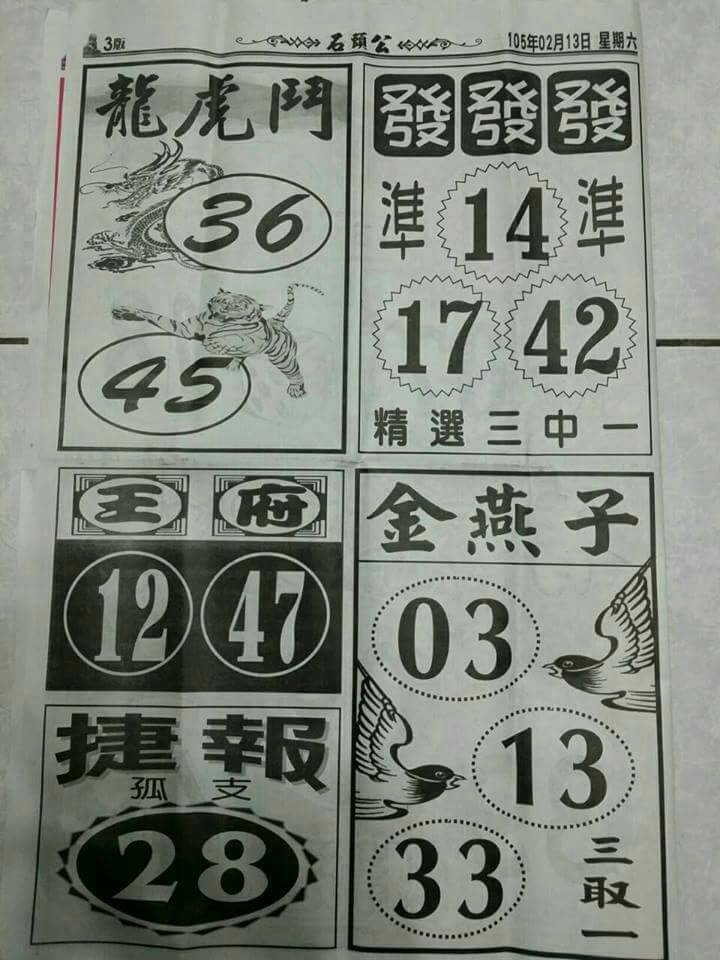 3版 石頭公 105年02月13日 星期六
龍虎鬥
36
45
發發發
準 14 準
17 42
精選三中一
王府
12 47
捷報
孤支
28
金燕子
03
13
33
三取一